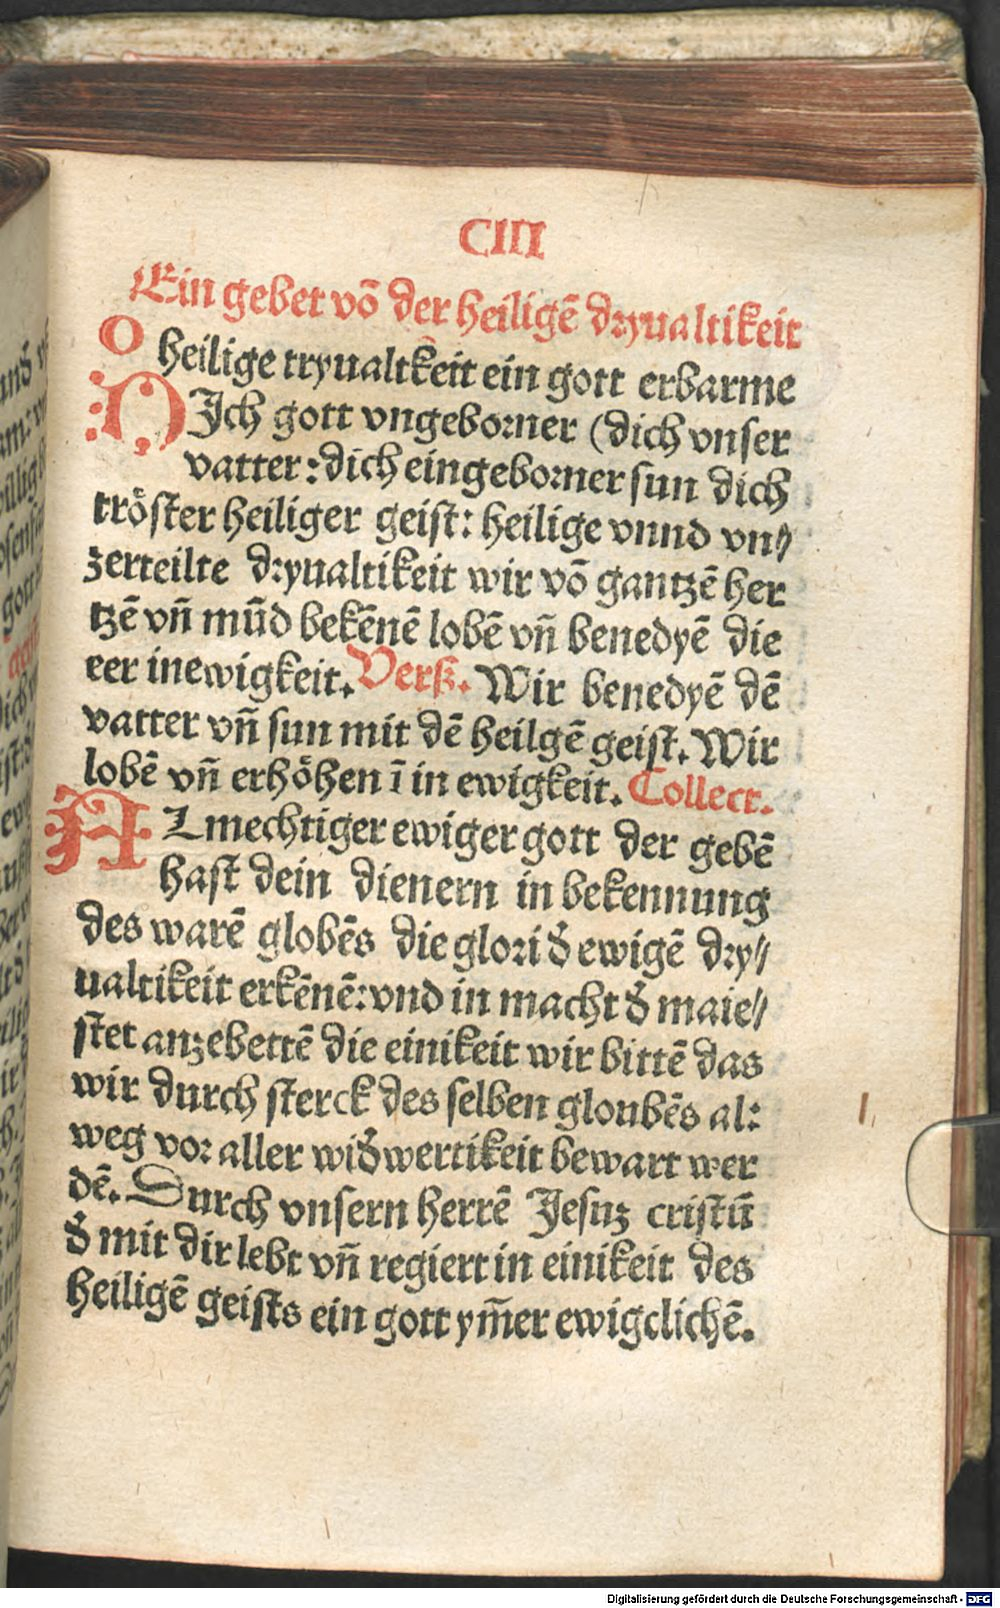 CIII
Ein gebet võ der heiligẽ dryualtikeit
O heilige tryualtkeit ein gott erbarme
DJch gott vngeborner (dich vnser
vatter: dich eingeborner sun dich
tröster heiliger geist: heilige vnnd vn//
zerteilte dryualtikeit wir võ gantzẽ her
tzẽ vñ mũd bekẽnẽ lobẽ vñ benedyẽ die
eer inewigkeit. Verß. Wir benedyẽ dẽ
vatter vñ sun mit dẽ heilgẽ geist. Wir
lobẽ vñ erhöhen ĩ in ewigkeit. Collect.
ALmechtiger ewiger gott der gebẽ
hast dein dienern in bekennung
des warẽ globẽs die glori d̄ ewigẽ dry//
ualtikeit erkẽnẽ: vnd in macht d̄ maie//
stet anzebettẽ die einikeit wir bittẽ das
wir durch sterck des selben gloubẽs al:
weg vor aller wid̄wertikeit bewart wer
dẽ. Durch vnsern herrẽ Jesuz cristũ
d̄ mit dir lebt vñ regiert in einikeit des
heiligẽ geists ein gott ym̃er ewigclichẽ.
Digitalisierung gefördert durch die Deutsche Forschungsgemeinschaft - DFG